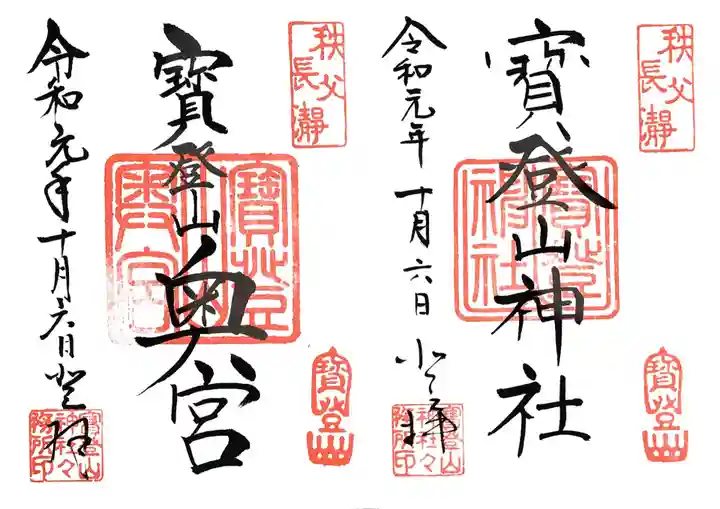 秩父
長瀞
寶登山神社
寶登
寶登山
神社々
務所印
令和元年十月六日
秩父
長瀞
寶登山奥宮
寶登
奥宮
寶登
寶登山
神社々
務所印
令和元年十月六日